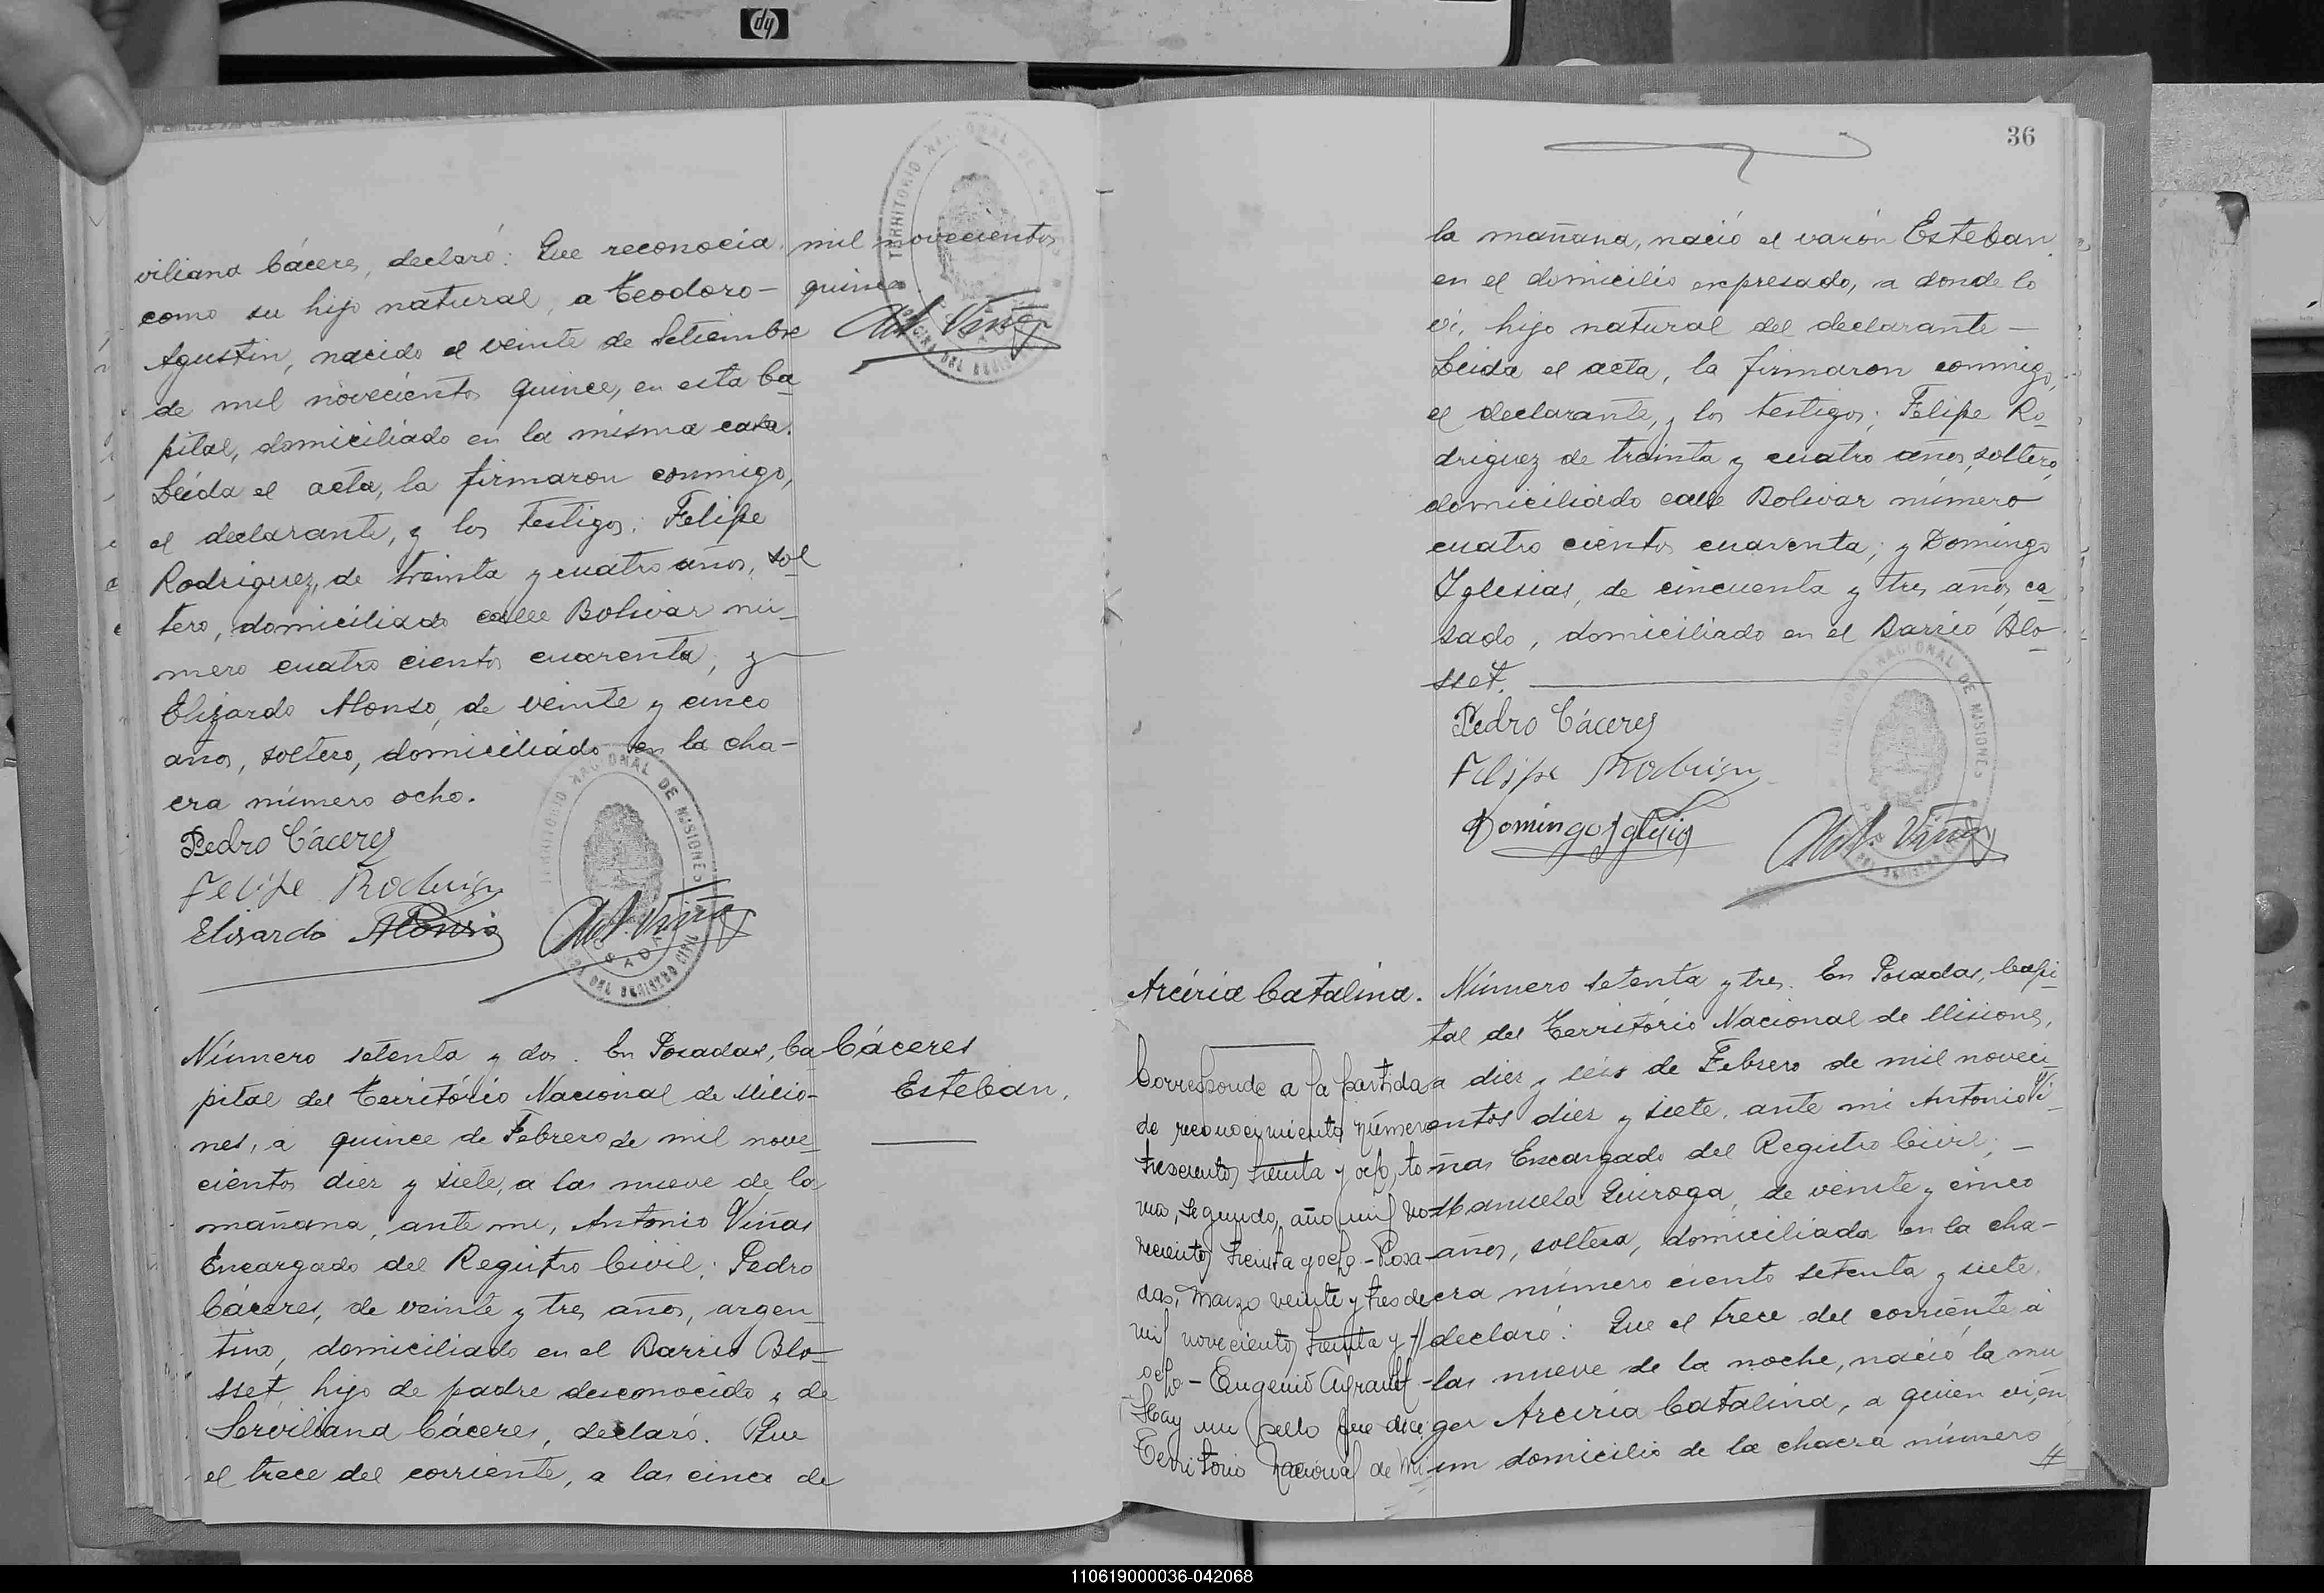 hp
viliana Cáceres, declaró: Que reconocia
como su hijo natural, a Teodoro —
Agustin, nacido el veinte de Setiembre
de mil novecientos quince, en esta Ca_
pital, domiciliado en la misma casa.
Leida el acta, la firmaron conmigo,
el declarante, y los testigos: Felipe
Rodriguez, de treinta y cuatro años, sol_
tero, domiciliado calle Bolivar nú_
mero cuatro cientos cuarenta; y —
Elizardo Alonso, de veinte y cinco
años, soltero, domiciliado en la cha-
cra número ocho.
Pedro Cáceres
Felipe Rodrigu
Elisardo Alonso
Ant. Viñas
TERRITORIO NACIONAL DE MISIONES
OFICINA DEL REGISTRO CIVIL
POSADAS
mil novecientos
quince
Ant. Viñas
TERRITORIO NACIONAL DE MISIONES
OFICINA DEL REGISTRO
Número setenta y dos. En Posadas, Ca
pital del Territorio Nacional de Misio-
nes, a quince de Febrero de mil nove_
cientos diez y siete, a las nueve de la
mañana, ante mi, Antonio Viñas
Encargado del Registro Civil; Pedro
Cáceres, de veinte y tres años, argen_
tino, domiciliado en el Barrio Blo_
sset, hijo de padre desconocido y de
Serviliana Cáceres, declaró. Que
el trece del corriente, a las cinco de
Cáceres
Esteban.
36
la mañana, nació el varón Esteban
en el domicilio expresado, a donde lo
vi, hijo natural del declarante —
Leida el acta, la firmaron conmigo,
el declarante, y los testigos; Felipe Ro_
driguez de treinta y cuatro años, soltero,
domiciliado calle Bolivar número
cuatro cientos cuarenta; y Domingo
Yglesias, de cincuenta y tres años, ca_
sado, domiciliado en el Barrio Blo_
sset.
Pedro Cáceres
Felipe Rodrigu
Domingo Iglesias
Ant. Viñas
TERRITORIO NACIONAL DE MISIONES
DEL REGISTRO CIVIL
Arciria Catalina.
Corresponde a la partida
de reconocimiento número
trescientos treinta y ocho, to
mo, segundo, año mil no-
vecientos treinta y ocho - Posa-
das, Marzo veinte y tres de
mil novecientos treinta y //
ocho - Eugenio
Hay un sello que dice:
Territorio Nacional de Mi
Número setenta y tres. En Posadas, Capi_
tal del Territorio Nacional de Misiones,
a diez y seis de Febrero de mil noveci_
entos diez y siete, ante mi Antonio Vi_
ñas Encargado del Registro Civil; —
Manuela Quiroga, de veinte y cinco
años, soltera, domiciliada en la cha-
cra número ciento setenta y siete.
declaró: Que el trece del corriente a
las nueve de la noche, nació la mu
ger Arciria Catalina, a quien vi, en
un domicilio de la chacra número
//
110619000036-042068